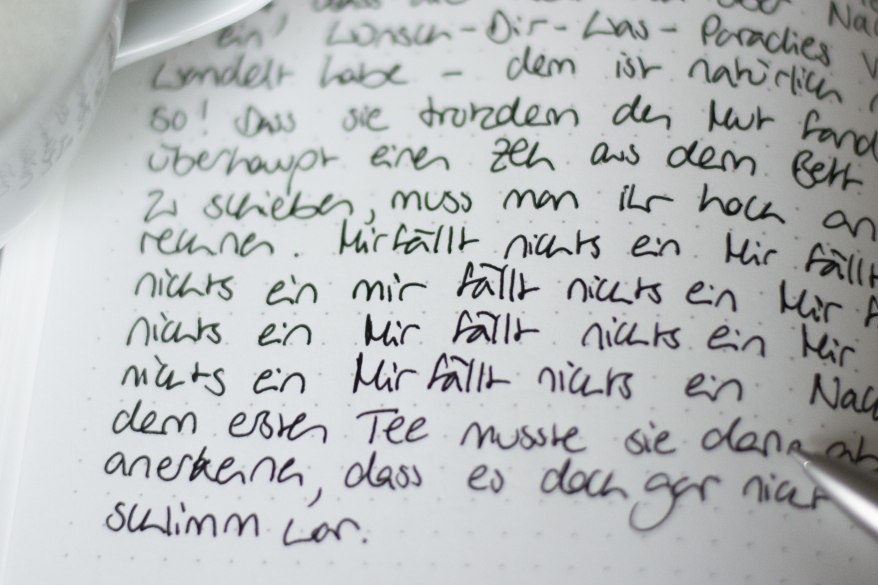 ein! Wünsch-Dir-Was-Paradies
wandelt habe - dem ist natürlich
so! Dass sie trotzdem den Mut fand
überhaupt einen Zeh aus dem Bett
zu schieben, muss man ihr hoch an
rechnen. Mir fällt nichts ein Mir fällt
nichts ein mir fällt nichts ein Mir
nichts ein Mir fällt nichts ein Mir
nichts ein Mir fällt nichts ein Nach
dem ersten Tee musste sie dann
anerkennen, dass es doch gar nicht
schlimm war.